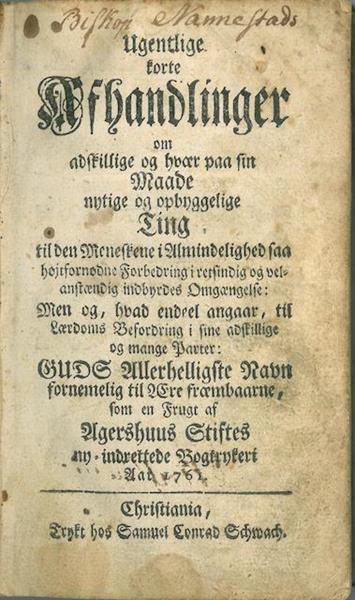 Biskop Nannestads
Ugentlige
korte
Afhandlinger
om
adskillige og hvær paa sin
Maade
nytige og opbyggelige
Ting
til den Meneskene i Almindelighed saa
højtfornødne Forbedring i retsindig og vel-
anstændig indbyrdes Omgængelse:
Men og, hvad endeel angaar, til
Lærdoms Befordring i sine adskillige
og mange Parter:
GUDS Allerhelligste Navn
fornemelig til Ære fræmbaarne,
som en Frugt af
Agershuus Stiftes
ny-indrettede Bogtrykeri
Aar 1761.
Christiania,
Trykt hos Samuel Conrad Schwach.